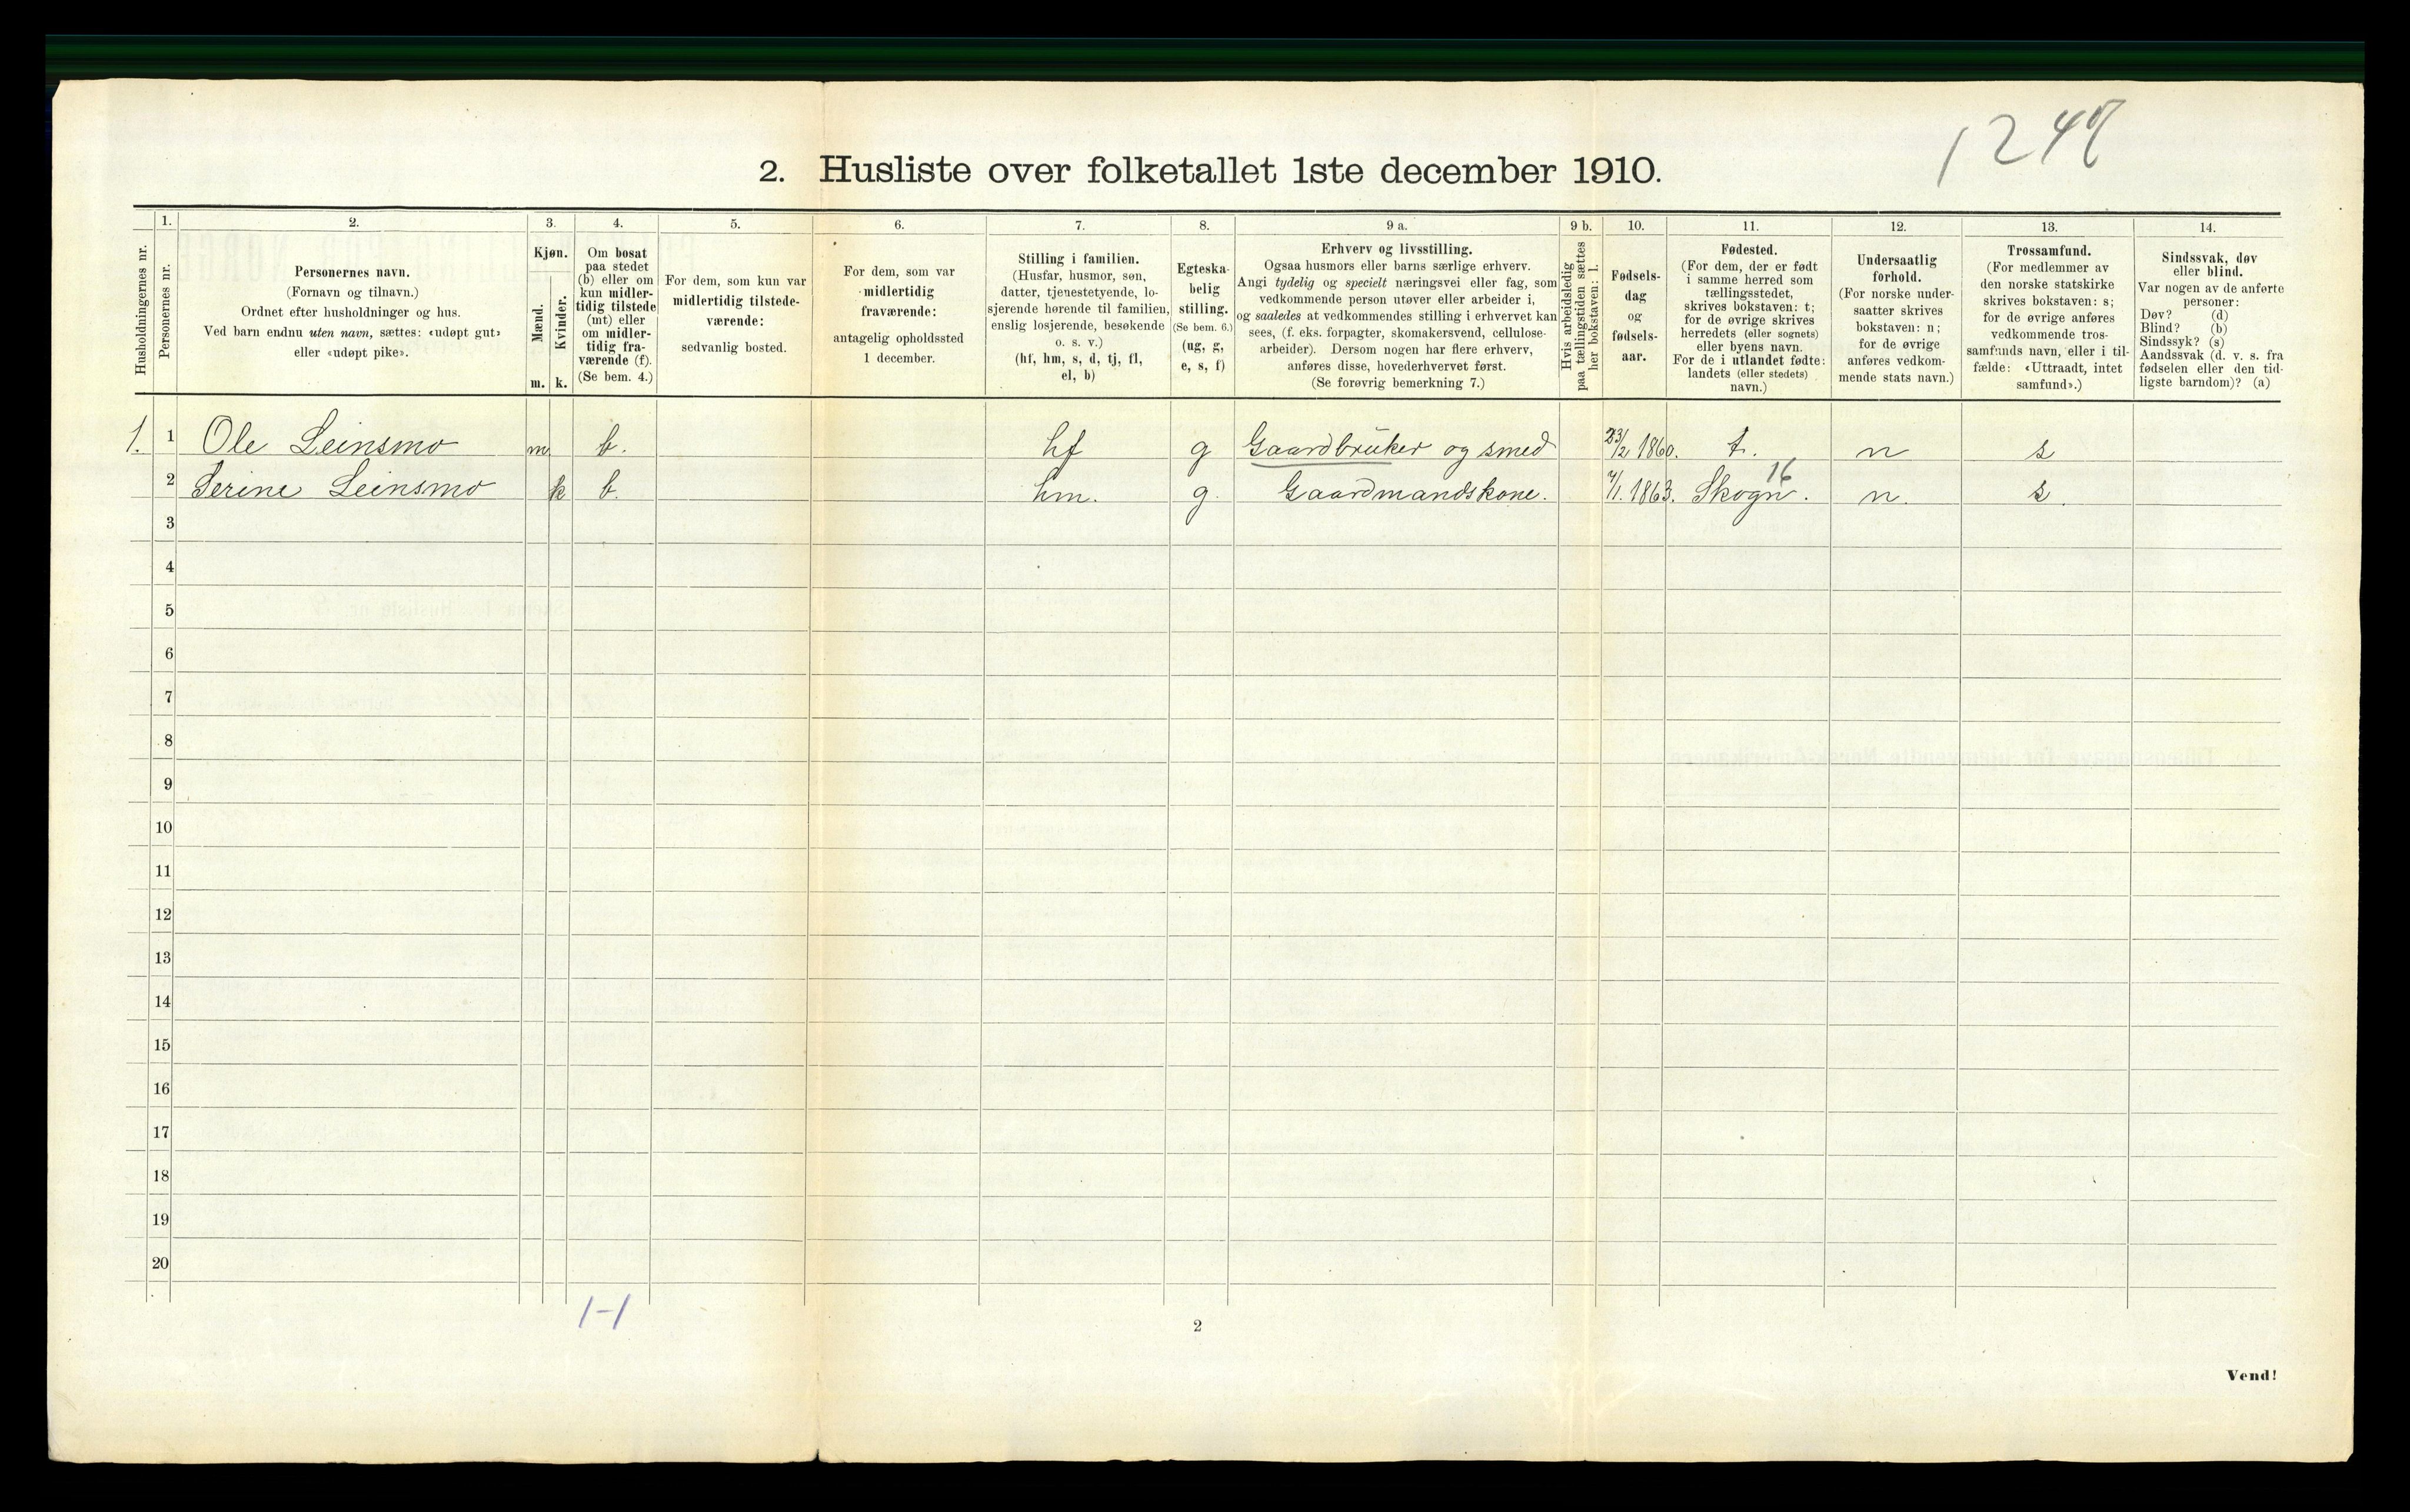 1247
2. Husliste over folketallet 1ste december 1910.
Husholdningernes nr.
1.
Personernes nr.
2.
Personernes navn.
(Fornavn og tilnavn.)
Ordnet efter husholdninger og hus.
Ved barn endnu uten navn, sættes: «udøpt gut»
eller «udøpt pike».
3.
Kjøn.
Mænd.
Kvinder.
m. k.
4.
Om bosat
paa stedet
(b) eller om
kun midler-
tidig tilstede
(mt) eller
om midler-
tidig fra-
værende (f).
(Se bem. 4.)
5.
For dem, som kun var
midlertidig tilstede-
værende:
sedvanlig bosted.
6.
For dem, som var
midlertidig
fraværende:
antagelig opholdssted
1 december.
7.
Stilling i familien.
(Husfar, husmor, søn,
datter, tjenestetyende, lo-
sjerende hørende til familien,
enslig losjerende, besøkende
o. s. v.)
(hf, hm, s, d, tj, fl,
el, b)
8.
Egteska-
belig
stilling.
(Se bem. 6.)
(ug, g,
e, s, f)
9 a.
Erhverv og livsstilling.
Ogsaa husmors eller barns særlige erhverv.
Angi tydelig og specielt næringsvei eller fag, som
vedkommende person utøver eller arbeider i,
og saaledes at vedkommendes stilling i erhvervet kan
sees, (f. eks. forpagter, skomakersvend, cellulose-
arbeider). Dersom nogen har flere erhverv,
anføres disse, hovederhvervet først.
(Se forøvrig bemerkning 7.)
9 b.
Hvis arbeidsledig
paa tællingstiden sættes
her bokstaven: l.
10.
Fødsels-
dag
og
fødsels-
aar.
11.
Fødested.
(For dem, der er født
i samme herred som
tællingsstedet,
skrives bokstaven: t;
for de øvrige skrives
herredets (eller sognets)
eller byens navn.
For de i utlandet fødte:
landets (eller stedets)
navn.)
12.
Undersaatlig
forhold.
(For norske under-
saatter skrives
bokstaven: n;
for de øvrige
anføres vedkom-
mende stats navn.)
13.
Trossamfund.
(For medlemmer av
den norske statskirke
skrives bokstaven: s;
for de øvrige anføres
vedkommende tros-
samfunds navn, eller i til-
fælde: «Uttraadt, intet
samfund».)
14.
Sindssvak, døv
eller blind.
Var nogen av de anførte
personer:
Døv? (d)
Blind? (b)
Sindssyk? (s)
Aandssvak (d. v. s. fra
fødselen eller den tid-
ligste barndom)? (a)
1. 1 Ole Leinsmo m b. hf g Gaardbruker og smed 23/2 1860. t. n s
16
2 Serine Leinsmo k b. hm. g. Gaardmandskone. 4/1. 1863. Skogn. n. s.
3
4
5
6
7
8
9
10
11
12
13
14
15
16
17
18
19
20
1-1
2
Vend!